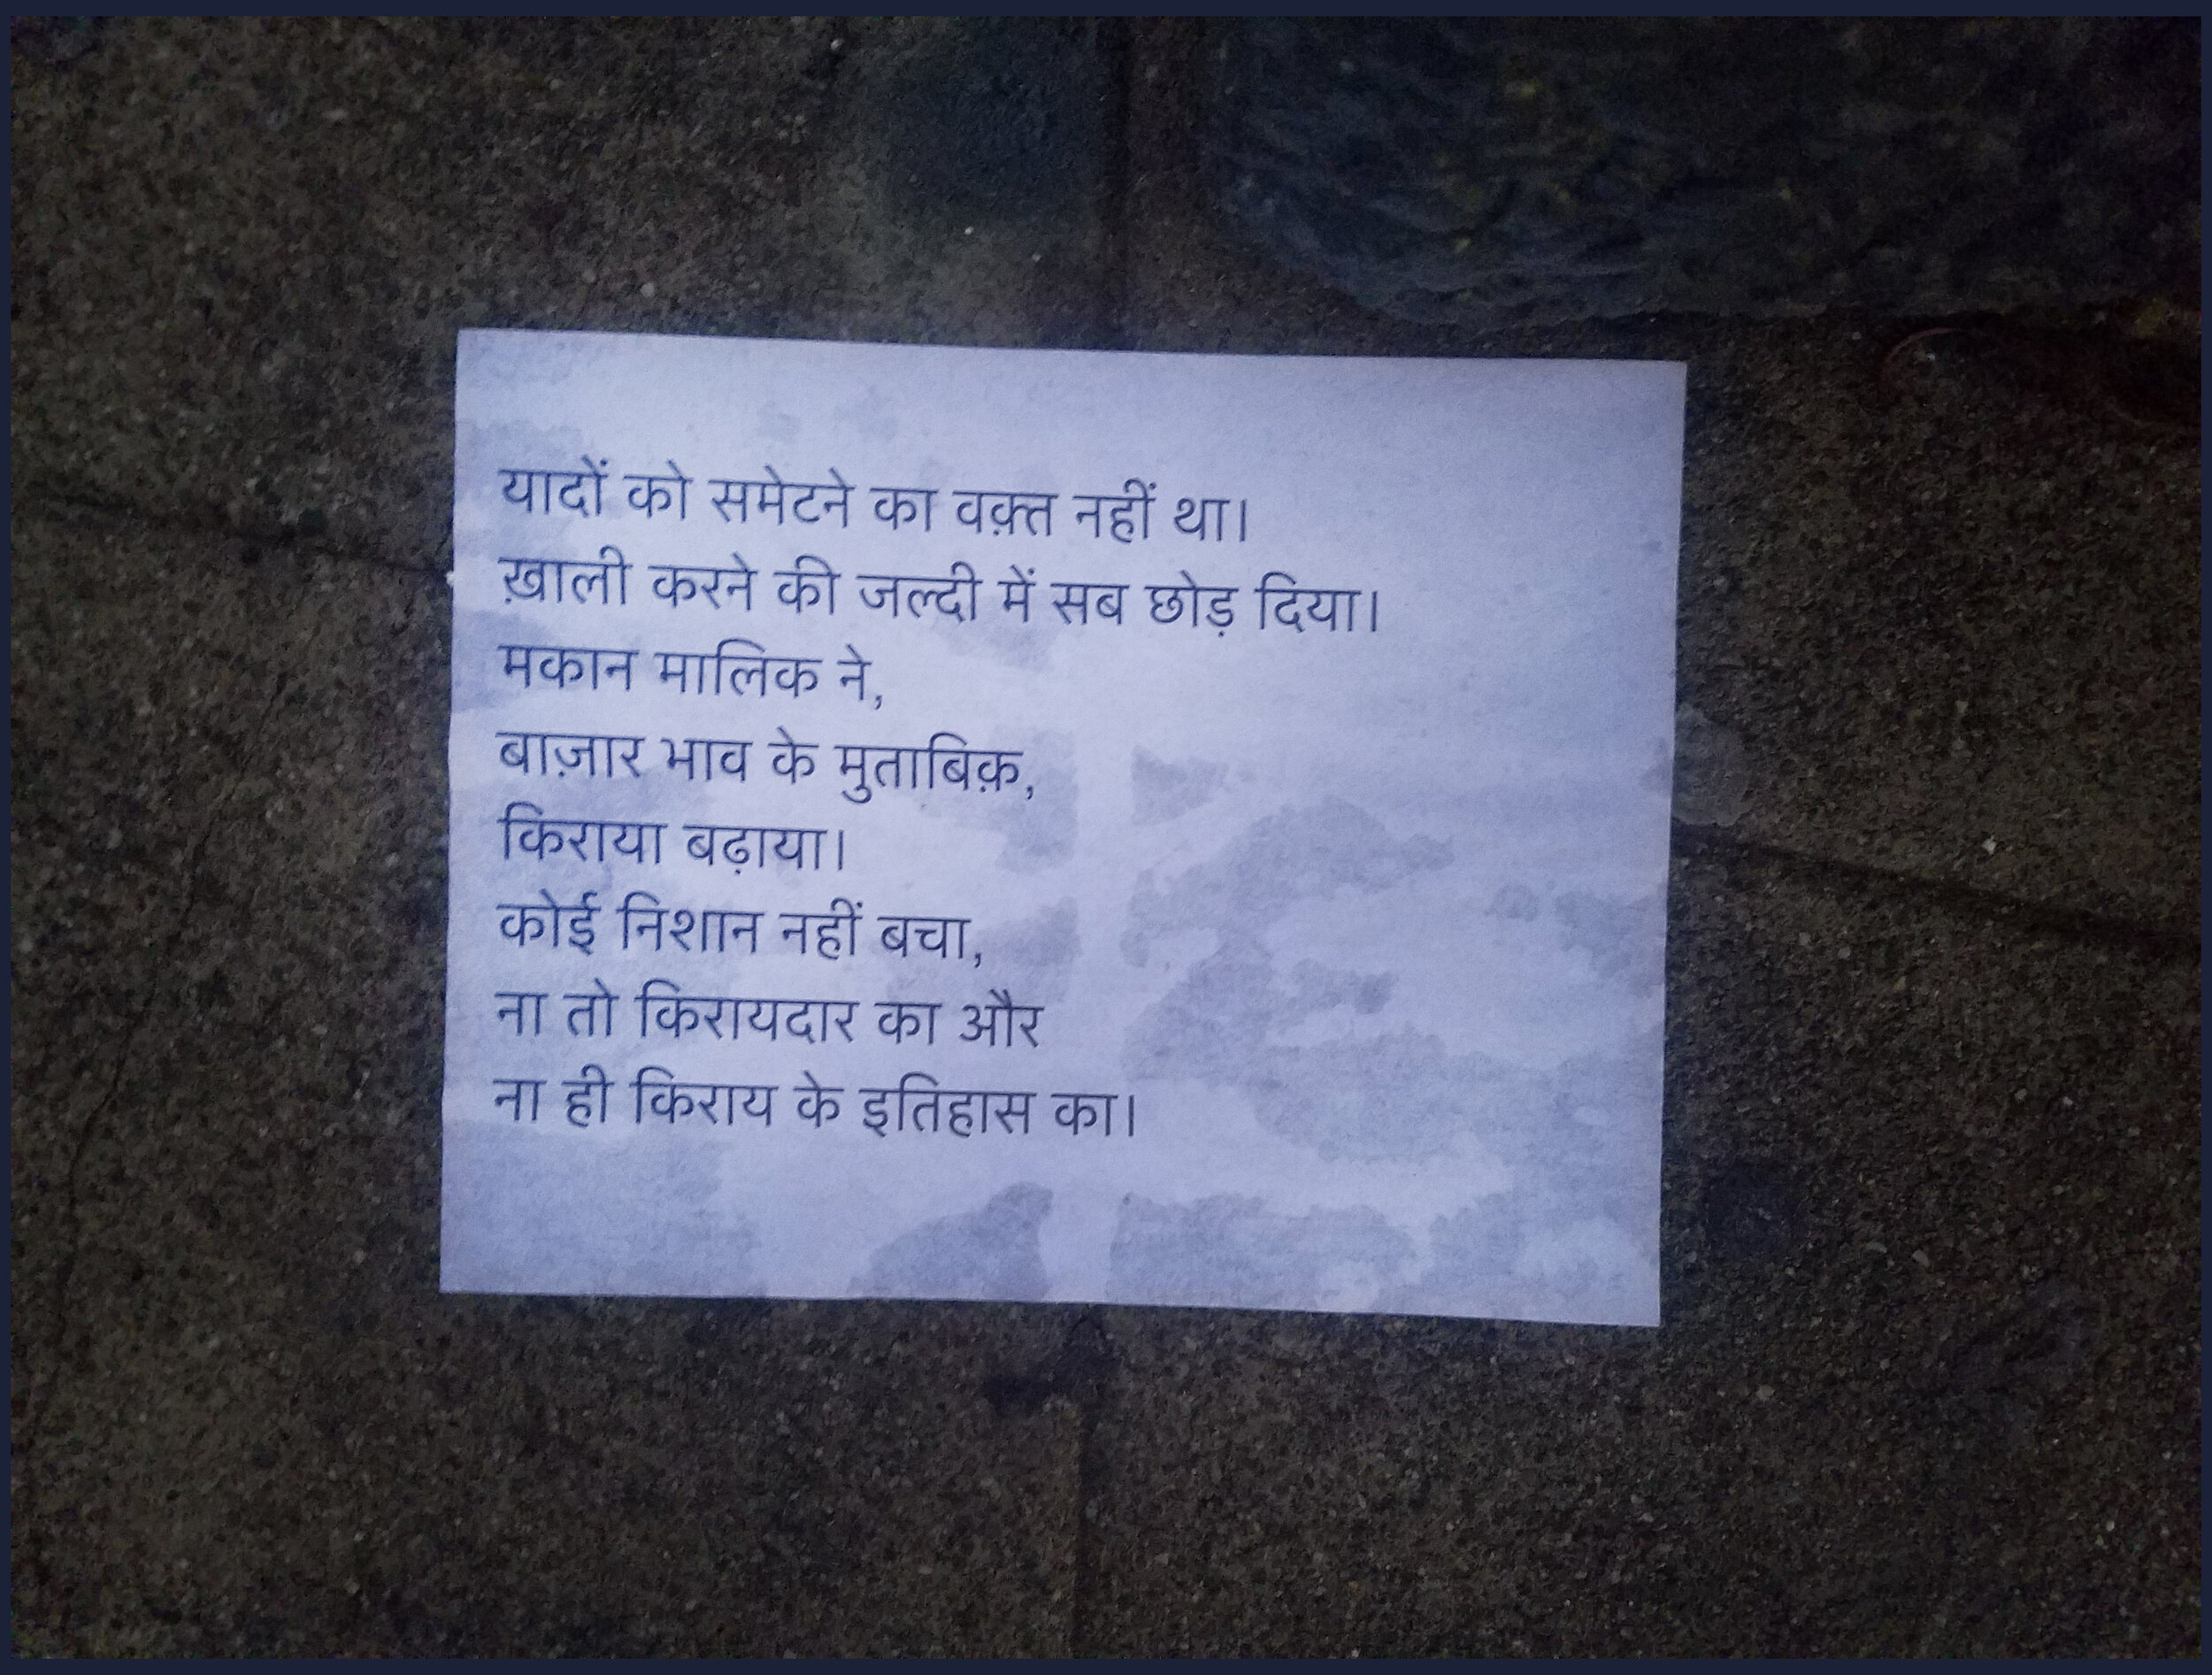 यादों को समेटने का वक़्त नहीं था।
ख़ाली करने की जल्दी में सब छोड़ दिया।
मकान मालिक ने,
बाज़ार भाव के मुताबिक़,
किराया बढ़ाया।
कोई निशान नहीं बचा,
ना तो किरायदार का और
ना ही किराय के इतिहास का।